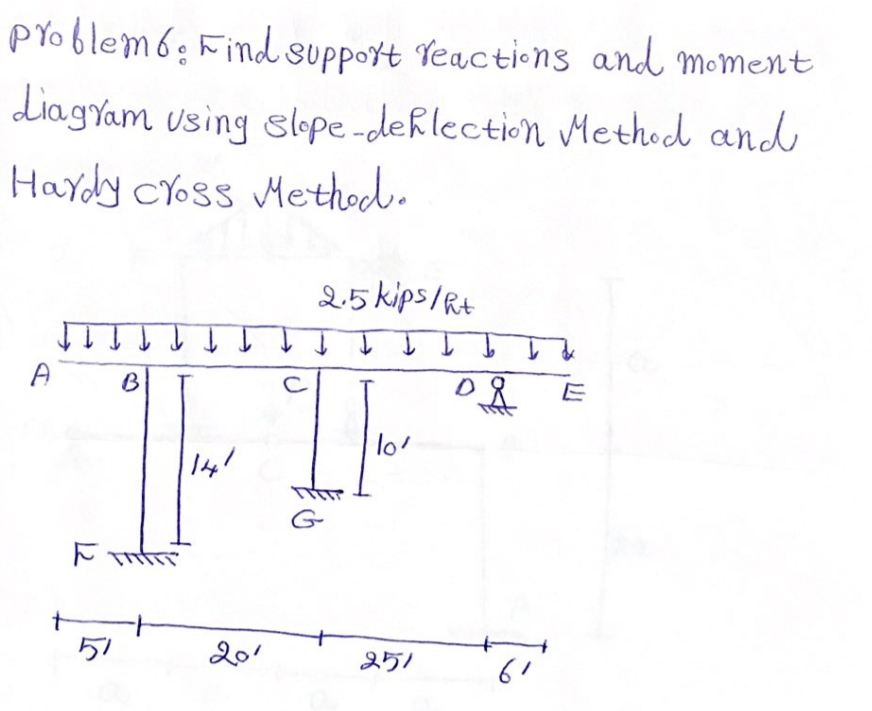 problem6: Find support reactions and moment
diagram using slope-deflection Method and
Hardy cross Method.
2.5 kips/ft
A B C D E
14'
10'
G
F
5' 20' 25' 6'